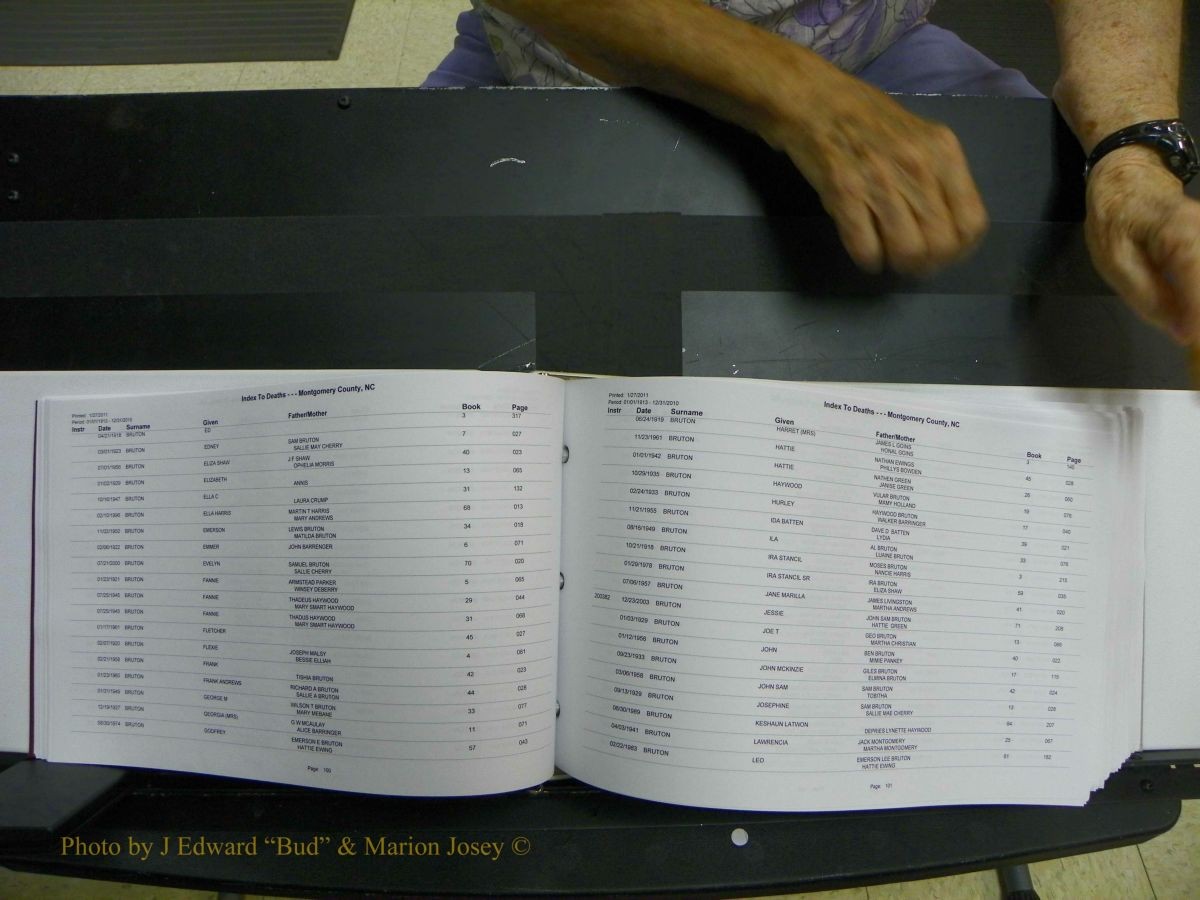 Index To Deaths - - - Montgomery County, NC
Printed: 1/27/2011
Period: 01/01/1913 - 12/31/2010
Instr Date Surname Given Father/Mother Book Page
04/21/1918 BRUTON ED 3 317
03/01/1923 BRUTON EDNEY SAM BRUTON 7 027
SALLIE MAY CHERRY
BRUTON ELIZA SHAW J F SHAW 40 023
OPHELIA MORRIS
BRUTON ELIZABETH ANNIS 13 065
10/16/1947 BRUTON ELLA C 31 132
LAURA CRUMP
02/10/1996 BRUTON ELLA HARRIS MARTIN T HARRIS 68 013
MARY ANDREWS
11/02/1950 BRUTON EMERSON LEWIS BRUTON 34 018
MATILDA BRUTON
02/06/1922 BRUTON EMMER JOHN BARRENGER 6 071
07/21/2000 BRUTON EVELYN SAMUEL BRUTON 70 020
SALLIE CHERRY
01/23/1921 BRUTON FANNIE ARMSTEAD PARKER 5 065
WINSEY DEBERRY
07/25/1945 BRUTON FANNIE THADEUS HAYWOOD 29 044
MARY SMART HAYWOOD
07/25/1945 BRUTON FANNIE THADUS HAYWOOD 31 068
MARY SMART HAYWOOD
01/17/1961 BRUTON FLETCHER 45 027
02/07/1920 BRUTON FLEXIE JOSEPH MALSY 4 081
BESSIE ELLIAH
02/21/1958 BRUTON FRANK 42 023
TISHIA BRUTON
01/23/1960 BRUTON FRANK ANDREWS RICHARD A BRUTON 44 028
SALLIE A BRUTON
01/21/1949 BRUTON GEORGE M WILSON T BRUTON 33 077
MARY MEBANE
12/19/1927 BRUTON GEORGIA (MRS) G W MCAULAY 11 071
ALICE BARRINGER
08/30/1974 BRUTON GODFREY EMERSON E BRUTON 57 043
HATTIE EWING
Page: 100
Index To Deaths - - - Montgomery County, NC
Printed: 1/27/2011
Period: 01/01/1913 - 12/31/2010
Instr Date Surname Given Father/Mother Book Page
06/24/1919 BRUTON HARRET (MRS) JAMES L GOINS 3 140
HONAL GOINS
11/23/1961 BRUTON HATTIE NATHAN EWINGS 45 028
PHILLYS BOWDEN
01/01/1942 BRUTON HATTIE NATHEN GREEN 26 060
JANISE GREEN
10/29/1935 BRUTON HAYWOOD VULAR BRUTON 19 076
MAMY HOLLAND
02/24/1933 BRUTON HURLEY HAYWOOD BRUTON 17 040
WALKER BARRINGER
11/21/1955 BRUTON IDA BATTEN DAVE D BATTEN 39 021
LYDIA
08/16/1949 BRUTON ILA AL BRUTON 33 078
LUAINE BRUTON
10/21/1918 BRUTON IRA STANCIL MOSES BRUTON 3 215
NANCIE HARRIS
01/29/1978 BRUTON IRA STANCIL SR IRA BRUTON 59 035
ELIZA SHAW
07/06/1957 BRUTON JANE MARILLA JAMES LIVINGSTON 41 020
MARTHA ANDREWS
200382 12/23/2003 BRUTON JESSIE JOHN SAM BRUTON 71 208
HATTIE GREEN
01/03/1929 BRUTON JOE T GEO BRUTON 13 066
MARTHA CHRISTIAN
01/12/1956 BRUTON JOHN BEN BRUTON 40 022
MIMIE PANKEY
09/23/1933 BRUTON JOHN MCKINZIE GILES BRUTON 17 115
ELMINA BRUTON
03/06/1958 BRUTON JOHN SAM SAM BRUTON 42 024
TOBITHA
09/13/1929 BRUTON JOSEPHINE SAM BRUTON 13 028
SALLIE MAE CHERRY
08/30/1989 BRUTON KESHAUN LATWON 64 207
DEPRIES LYNETTE HAYWOOD
04/03/1941 BRUTON LAWRENCIA JACK MONTGOMERY 25 067
MARTHA MONTGOMERY
02/22/1983 BRUTON LEO EMERSON LEE BRUTON 61 182
HATTIE EWING
Page: 101
Photo by J Edward “Bud” & Marion Josey ©